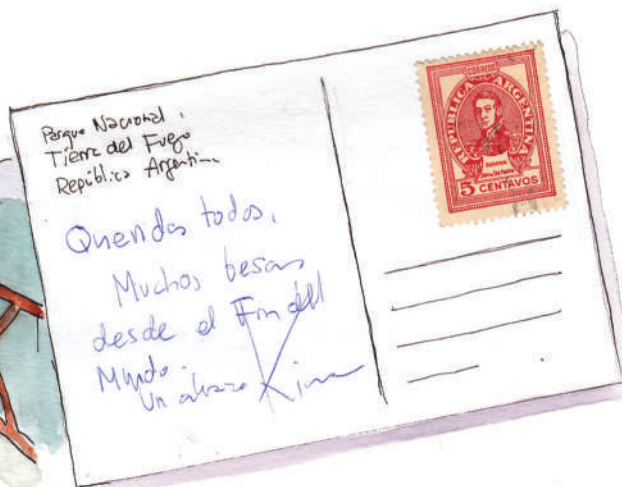 Parque Nacional
Tierra del Fuego
República Argentina
Queridos todos,
Muchos besos
desde el Fin del
Mundo.
Un abrazo
CORREOS
REPUBLICA ARGENTINA
5 CENTAVOS